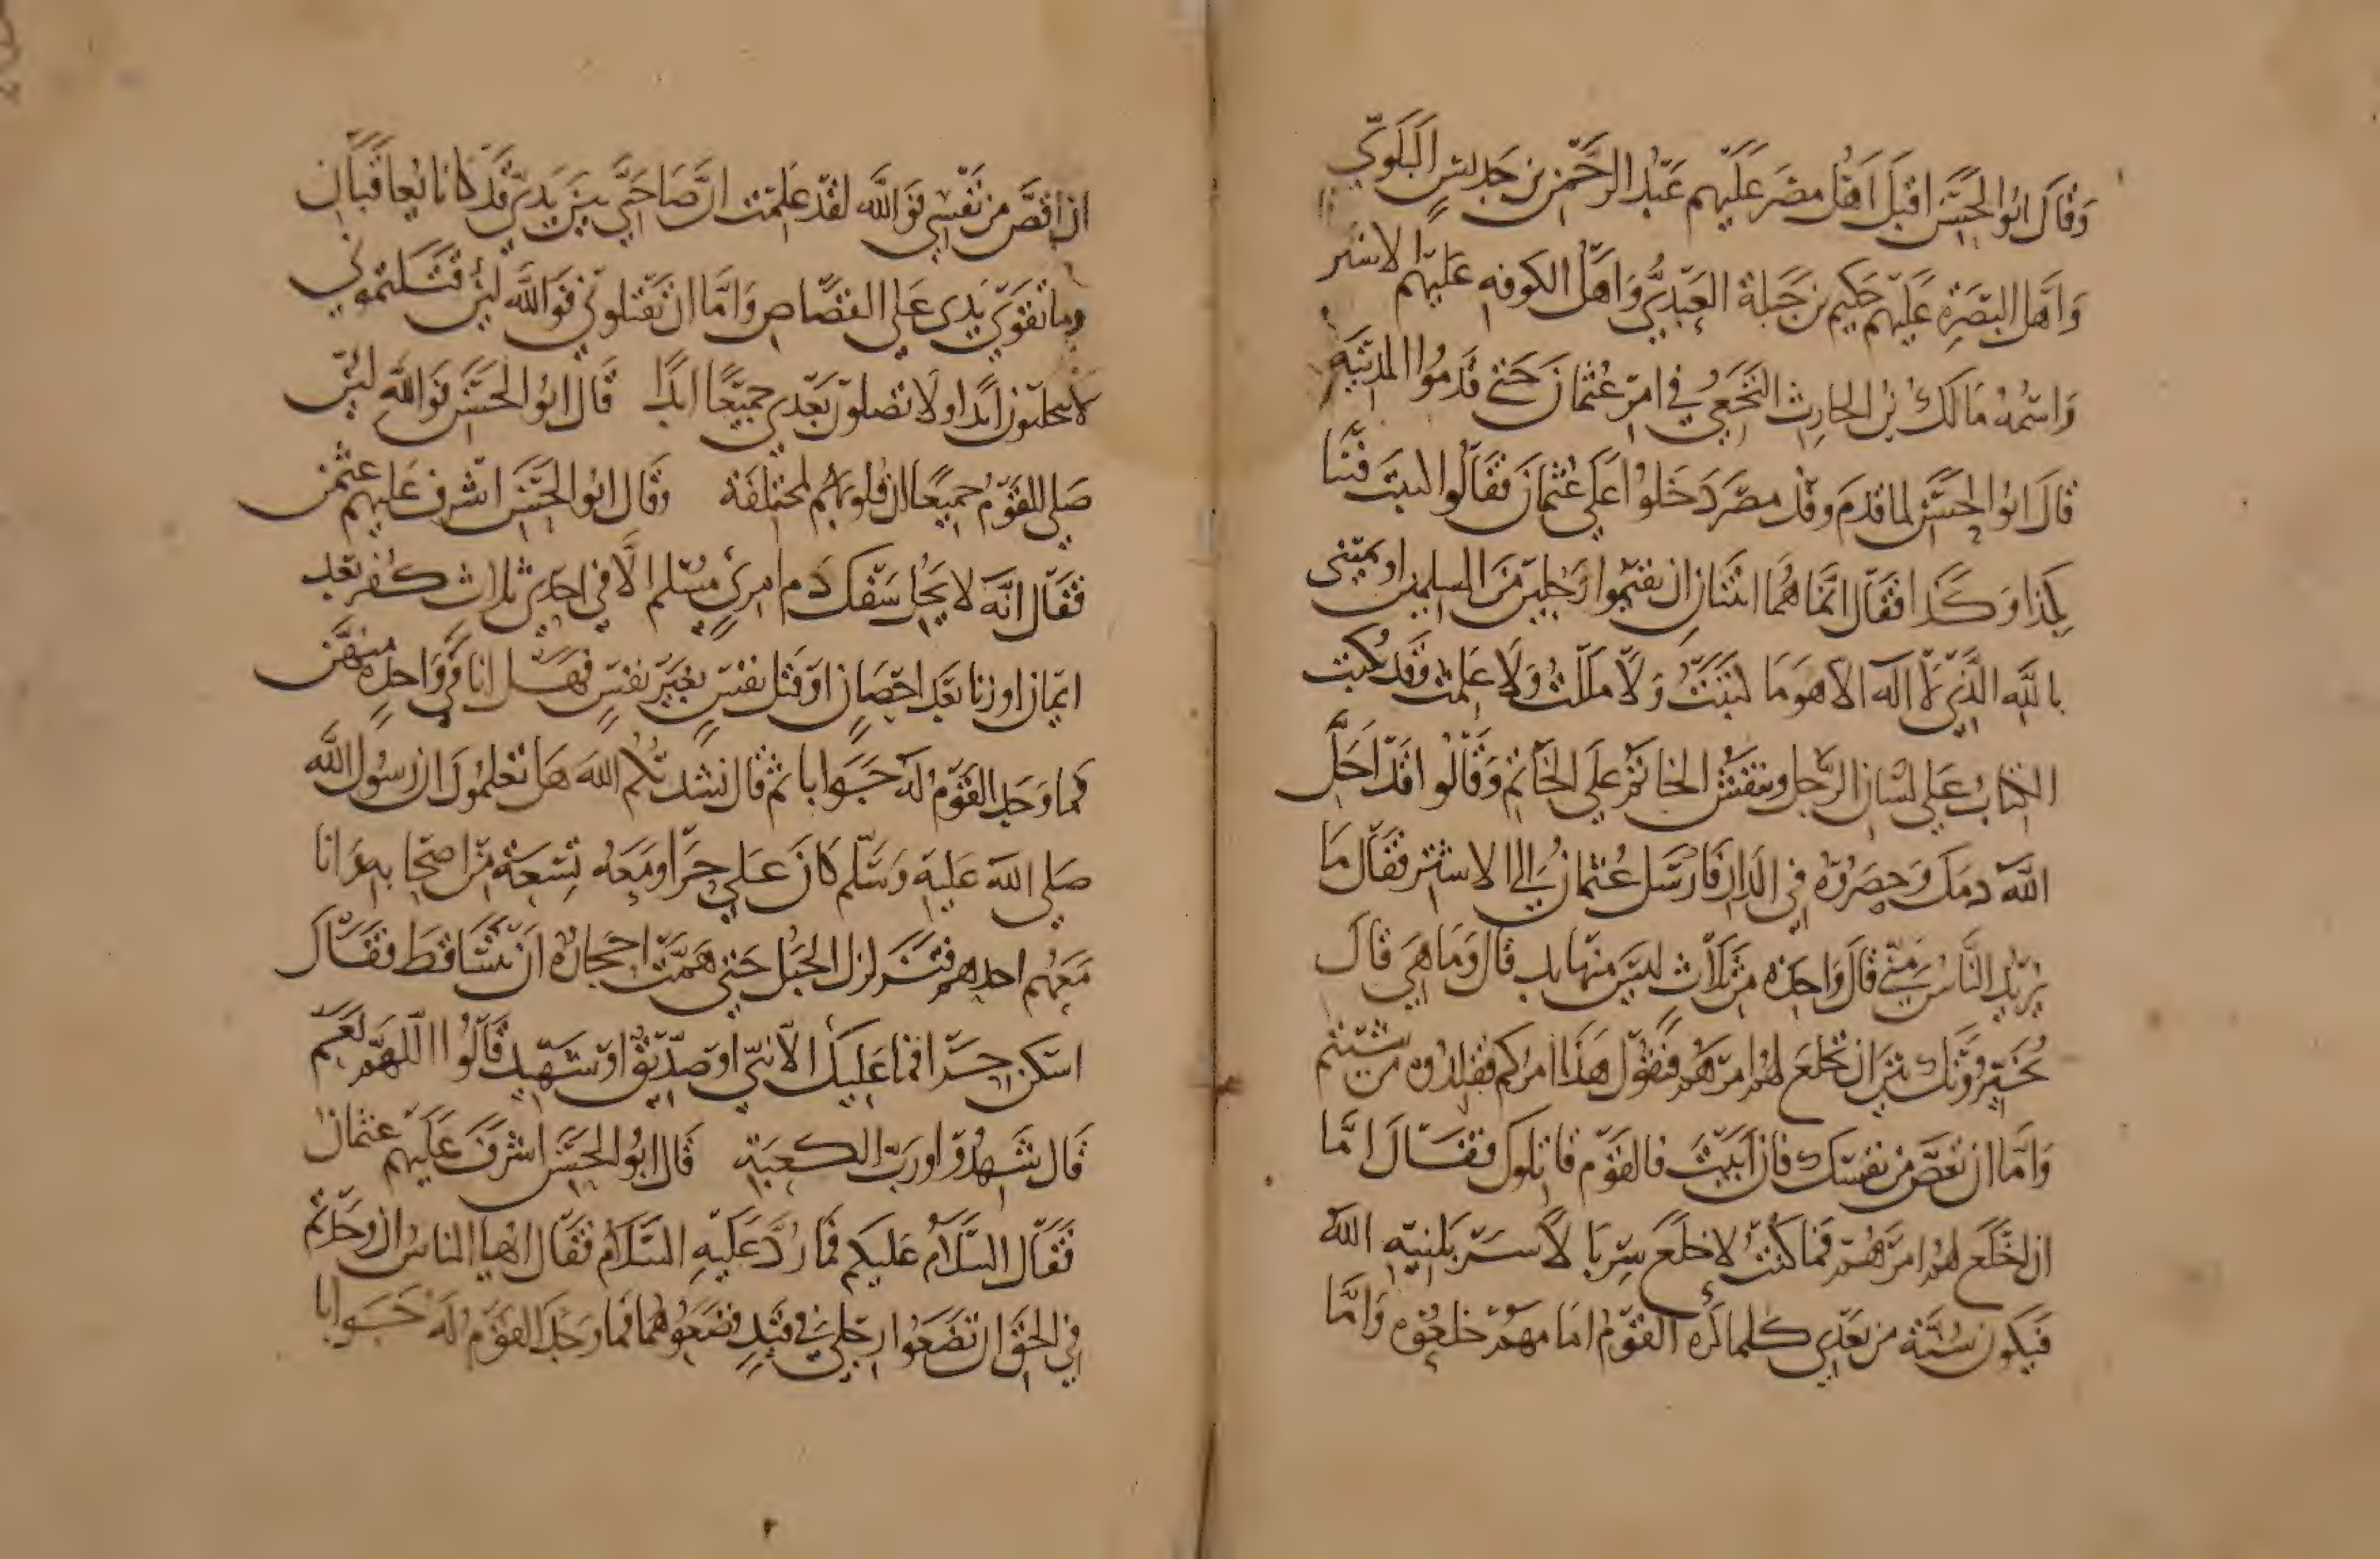 وقال ابو الحسن اقبل اهل مصر عليهم عبد الرحمن بن جديس البلوي
واهل البصرة عليهم حكيم بن جبلة العبدي واهل الكوفه عليهم الاشتر
واسمه مالك بن الحارث النخعي في امر عثمان حتى قدموا المدينة
قال ابو الحسن لما قدم وفد مصر دخلوا على عثمان فقالوا كتبت فينا
بكذا وكذا فقال انما هما اثنتان ان تقيموا رجلين من المسلمين او يميني
بالله الذي لا اله الا هو ما كتبت ولا مللت ولا علمت وقد يكتب
الكتاب على لسان الرجل وينقش الخاتم على الخاتم وقالوا قد احل
الله دمك وحصروه في الدار فارسل عثمان الى الاشتر فقال ما
يريد الناس مني قال واحدة من ثلاث ليس منها بد قال وما هي قال
يخيرونك بين ان تخلع لهم امرهم فتقول هذا امركم فقلدوه من شئتم
واما ان تقص من نفسك فان ابيت فالقوم قاتلوك فقال اما
ان اخلع لهم امرهم فما كنت لاخلع سربالا سربلنيه الله
فيكون سنة من بعدي كلما كره القوم امامهم خلعوه واما
ان اقص من نفسي فوالله لقد علمت ان صاحبي بين يدي قد كانا يعاقبان
وما تقوى يدي على القصاص واما ان تقتلوني فوالله لئن قتلتموني
لا تحابون ابدا ولا تصلون بعدي جميعا ابدا قال ابو الحسن فوالله لئن
صلى القوم جميعا ان قلوبهم لمختلفة وقال ابو الحسن اشرف عليهم عثمن
فقال انه لا يحل سفك دم امرئ مسلم الا في احدى ثلاث كفر بعد
ايمان او زنا بعد احصان او قتل نفس بغير نفس فهل انا في واحدة منهن
فما وجد القوم له جوابا ثم قال نشدتكم الله هل تعلمون ان رسول الله
صلى الله عليه وسلم كان على حرا ومعه تسعة من اصحابه وانا
معهم احدهم فتزلزل الجبل حتى همت احجاره ان تتساقط فقال
اسكن حرا فما عليك الا نبي او صديق او شهيد قالوا اللهم نعم
قال شهدوا ورب الكعبة قال ابو الحسن اشرف عليهم عثمان
فقال السلام عليكم فما رد عليه السلام فقال ايها الناس ان وجدتم
في الحق ان تضعوا رجلي في قيد فضعوهما فما وجد القوم له جوابا